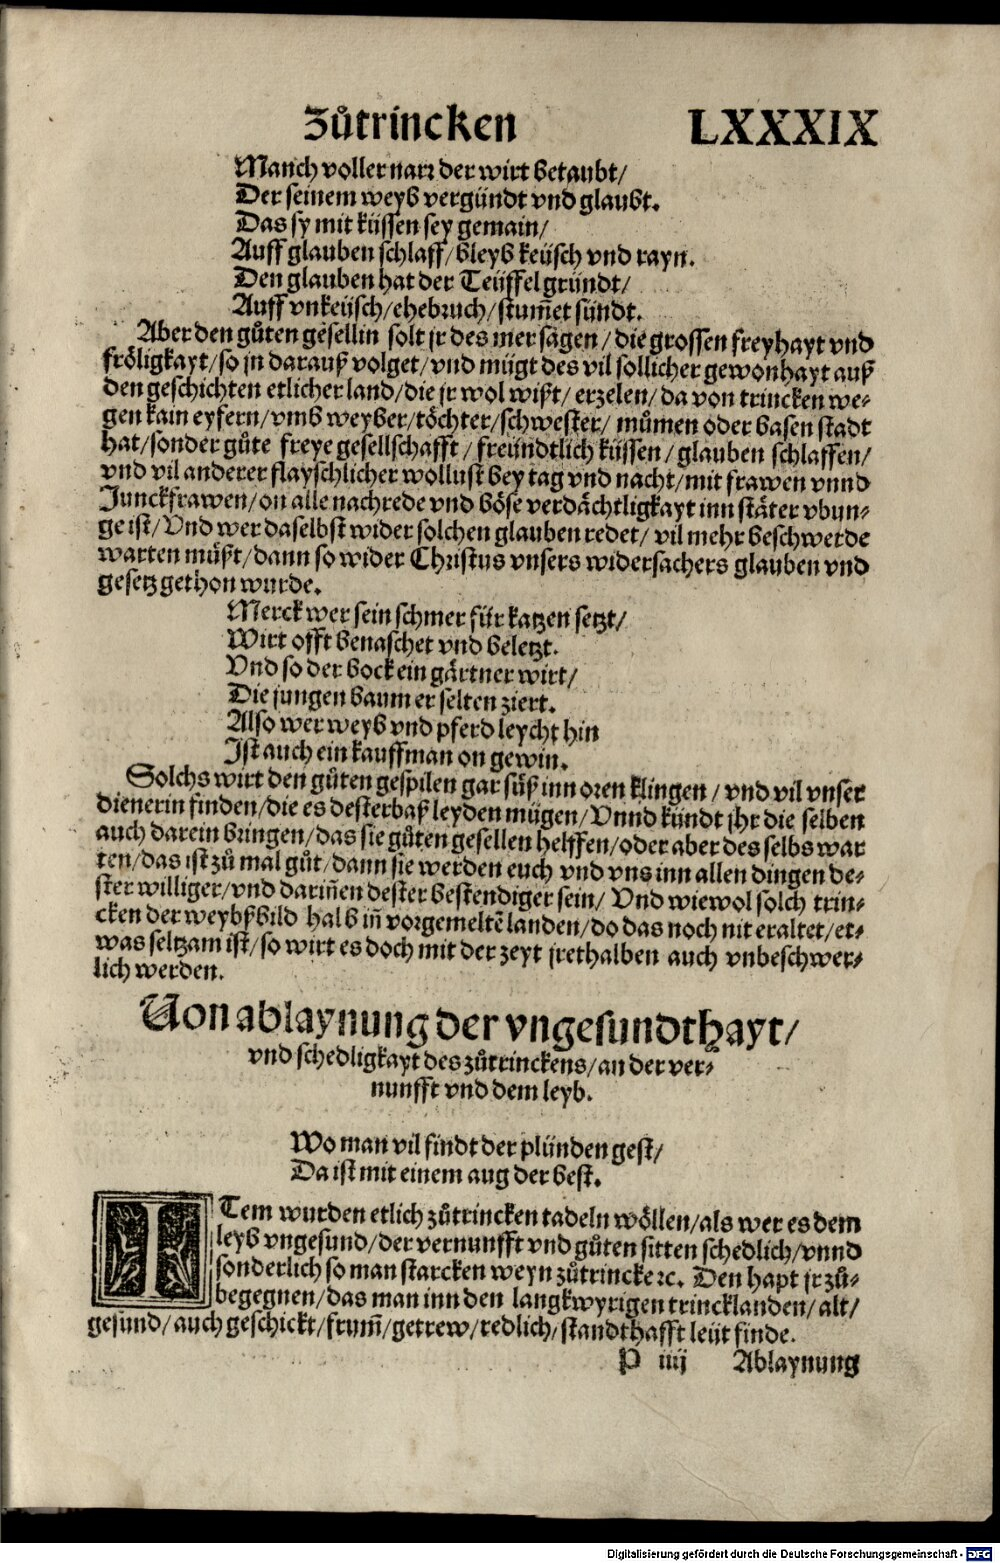 Zůtrincken LXXXIX
Manch voller narr der wirt betaubt/
Der seinem weyb vergündt vnd glaubt.
Das sy mit küssen sey gemain/
Auff glauben schlaff/ bleyb keüsch vnd rayn.
Den glauben hat der Teüffel gründt/
Auff vnkeüsch/ ehebruch/ stum̃et sündt.
Aber den gůten gesellin solt jr des mer sagen/ die grossen freyhayt vnd
fröligkayt/ so jn darauß volget/ vnd mügt des vil sollicher gewonhayt auß
den geschichten etlicher land/ die jr wol wißt/ erzelen/ da von trincken we-
gen kain eyfern/ vmb weyber/ töchter/ schwester/ můmen oder basen stadt
hat/ sonder gůte freye gesellschafft/ freündtlich küssen/ glauben schlaffen/
vnd vil anderer flayschlicher wollust bey tag vnd nacht/ mit frawen vnnd
Junckfrawen/ on alle nachrede vnd böse verdächtligkayt inn stäter vbun-
ge ist/ Vnd wer daselbst wider solchen glauben redet/ vil mehr beschwerde
warten müßt/ dann so wider Christus vnsers widersachers glauben vnd
gesetz gethon wurde.
Merck wer sein schmer für katzen setzt/
Wirt offt benaschet vnd beletzt.
Vnd so der bock ein gärtner wirt/
Die jungen baum er selten ziert.
Also wer weyb vnd pferd leycht hin
Ist auch ein kauffman on gewin.
Solchs wirt den gůten gespilen gar süß inn oren klingen/ vnd vil vnser
dienerin finden/ die es desterbaß leyden mügen/ Vnnd kündt jhr die selben
auch darein bringen/ das sie gůten gesellen helffen/ oder aber des selbs war
ten/ das ist zů mal gůt/ dann sie werden euch vnd vns inn allen dingen de-
ster williger/ vnd dariñen dester bestendiger sein/ Vnd wiewol solch trin-
cken der weybßbild halb iñ vorgemeltẽ landen/ do das noch nit eraltet/ et-
was seltzam ist/ so wirt es doch mit der zeyt jrethalben auch vnbeschwer-
lich werden.
Von ablaynung der vngesundthayt/
vnd schedligkayt des zůtrinckens/ an der ver-
nunfft vnd dem leyb.
Wo man vil findt der plünden gest/
Da ist mit einem aug der best.
ITem wurden etlich zůtrincken tadeln wöllen/ als wer es dem
leyb vngesund/ der vernunfft vnd gůten sitten schedlich/ vnnd
sonderlich so man starcken weyn zůtrincke ꝛc. Den hapt jr zů-
begegnen/ das man inn den langkwyrigen trincklanden/ alt/
gesund/ auch geschickt/ frum̃/ getrew/ redlich/ standthafft leüt finde.
P iiij Ablaynung
Digitalisierung gefördert durch die Deutsche Forschungsgemeinschaft - DFG